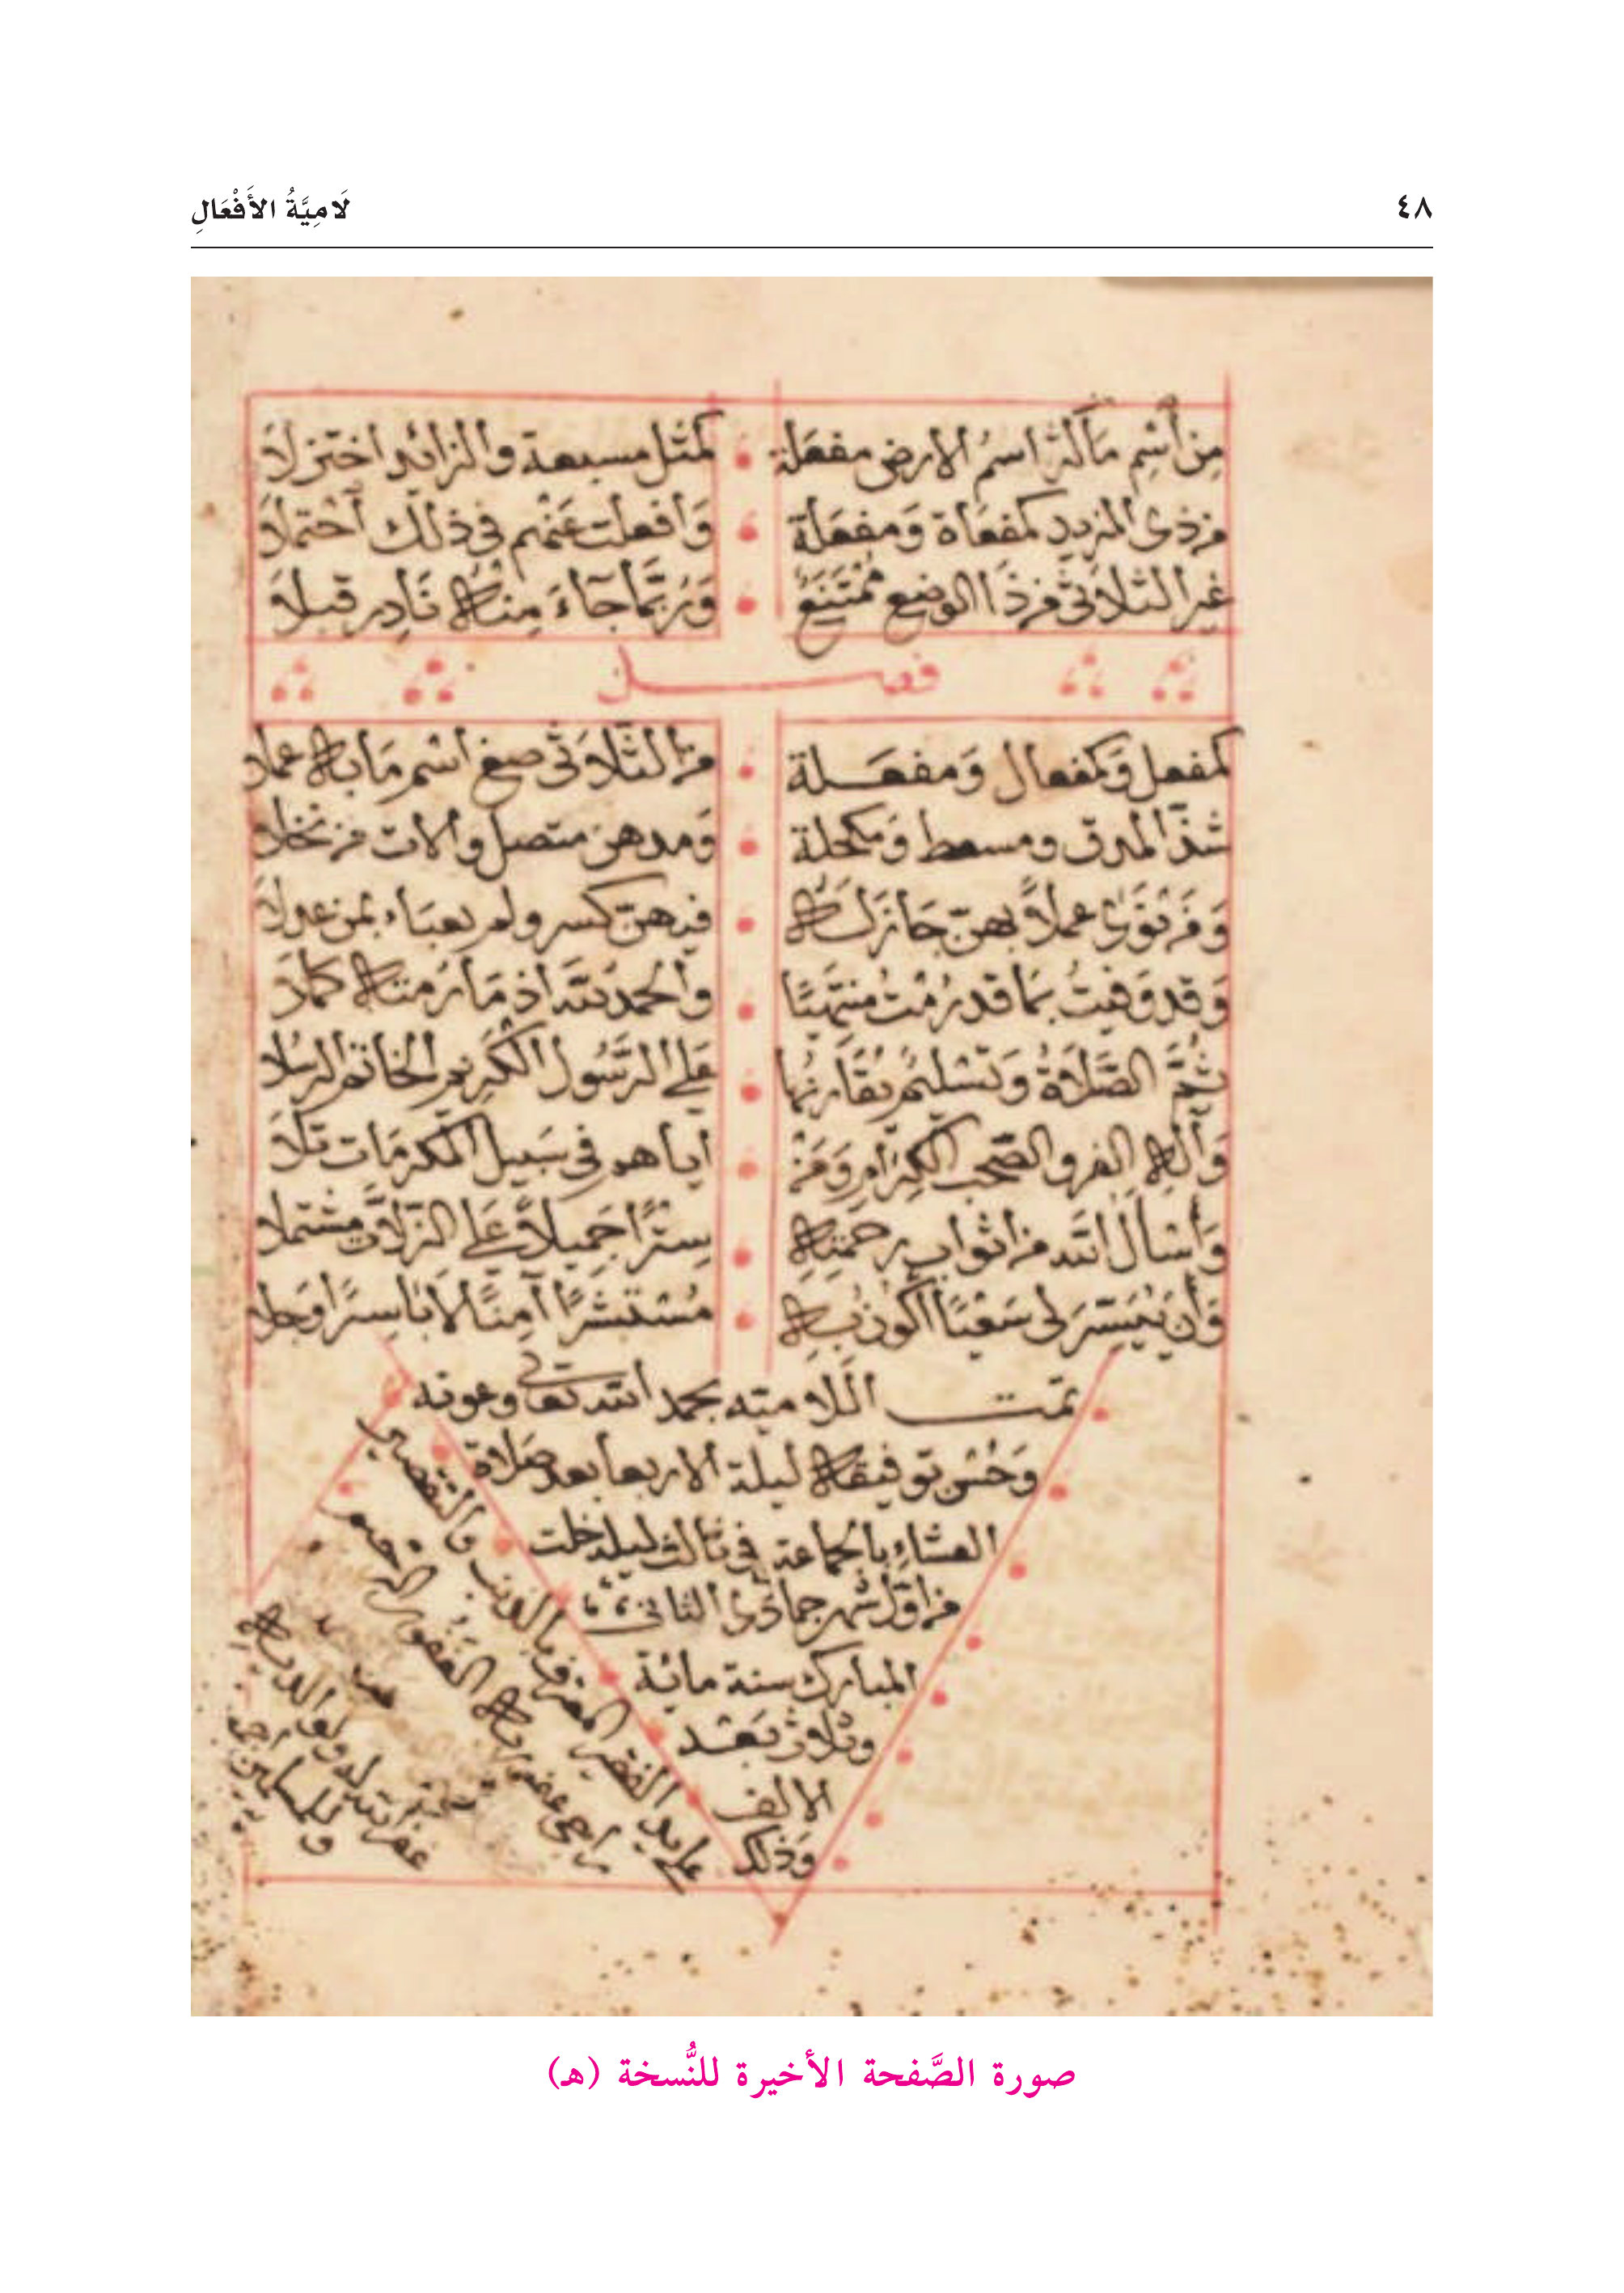 ٤٨
لَامِيَّةُ الأَفْعَالِ
مِن اسْمِ مَا كثر اسمُ الارض مفعَلة كمثل مسبعة والزائد اختزلَا
من ذى المزيد كمفعَاة وَمفعَلة وَافعلت عَنْهم فى ذلك احْتملَا
غير الثلاثى من ذَا الوضع مُمْتَنِعٌ وَرُبَّمَا جَآءَ مِنه نَادِر قبلَا
فصل
كمفعل وَكمفعال وَمفعَلة من الثلاثى صغ اسْم مَا به عملا
شذّ المدق ومسعط وَمكحلة وَمدهن متصل والات من نخلا
وَمَن نَوَى عملاً بهن جَازَ لَه فيهن كسر ولم يعبَاء بمن عدلَا
وَقد وَفيتُ بمَا قد رُمْتُ منتهيًا والحمد لله اذ مَا رُمته كملَا
ثُمَّ الصَّلَاةُ وَتَسْليمٌ يُقَارنهَا عَلى الرَّسُول الكَرِيم الخاتم الرسُلا
وَآلهِ الغر والصّحب الكِرَامِ وَمَنْ اياهم فى سَبيل المكرمَات تَلَا
وَأسْأل الله من اثواب رحمَتِهِ سِتْرًا جَميلاً عَلى الزلاَّت مشتملا
وَأن يُيَسّرَ لى سَعْيًا أكُون بهِ مُسْتَبْشرًا آمِنًا لَا بَاسِرًا وَجلا
تمّت اللَّلاميّه بحمد الله تعالى وعونه
وَحُسْن توفيقه ليلة الاربعا بعد صَلاة
العشاءِ بالجماعة فى ثالث ليلة خلت
من اوّل شهر جمادَى الثانى
المبارك سنة مائة
وثلاث بَعْد
الالف
وَذلك
على يد الفقير المعترف بالذنب والتقصير
راجى عفو ربه الغَفُور الرحيم
غفر الله له ولوالديه
وللمسلمين
صورة الصَّفحة الأخيرة للنُّسخة (هـ)